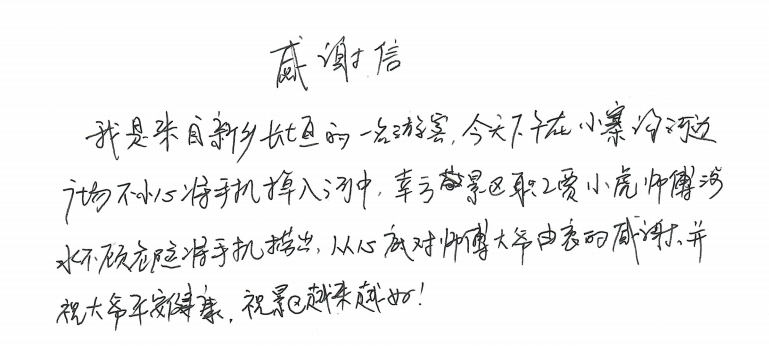 感谢信
我是来自新乡长垣的一名游客,今天下午在小寨沟河边
广场不小心将手机掉入河中,幸亏景区职工贾小虎师傅涉
水不顾危险将手机捞出,从心底对师傅大爷由衷的感谢,并
祝大爷平安健康,祝景区越来越好!